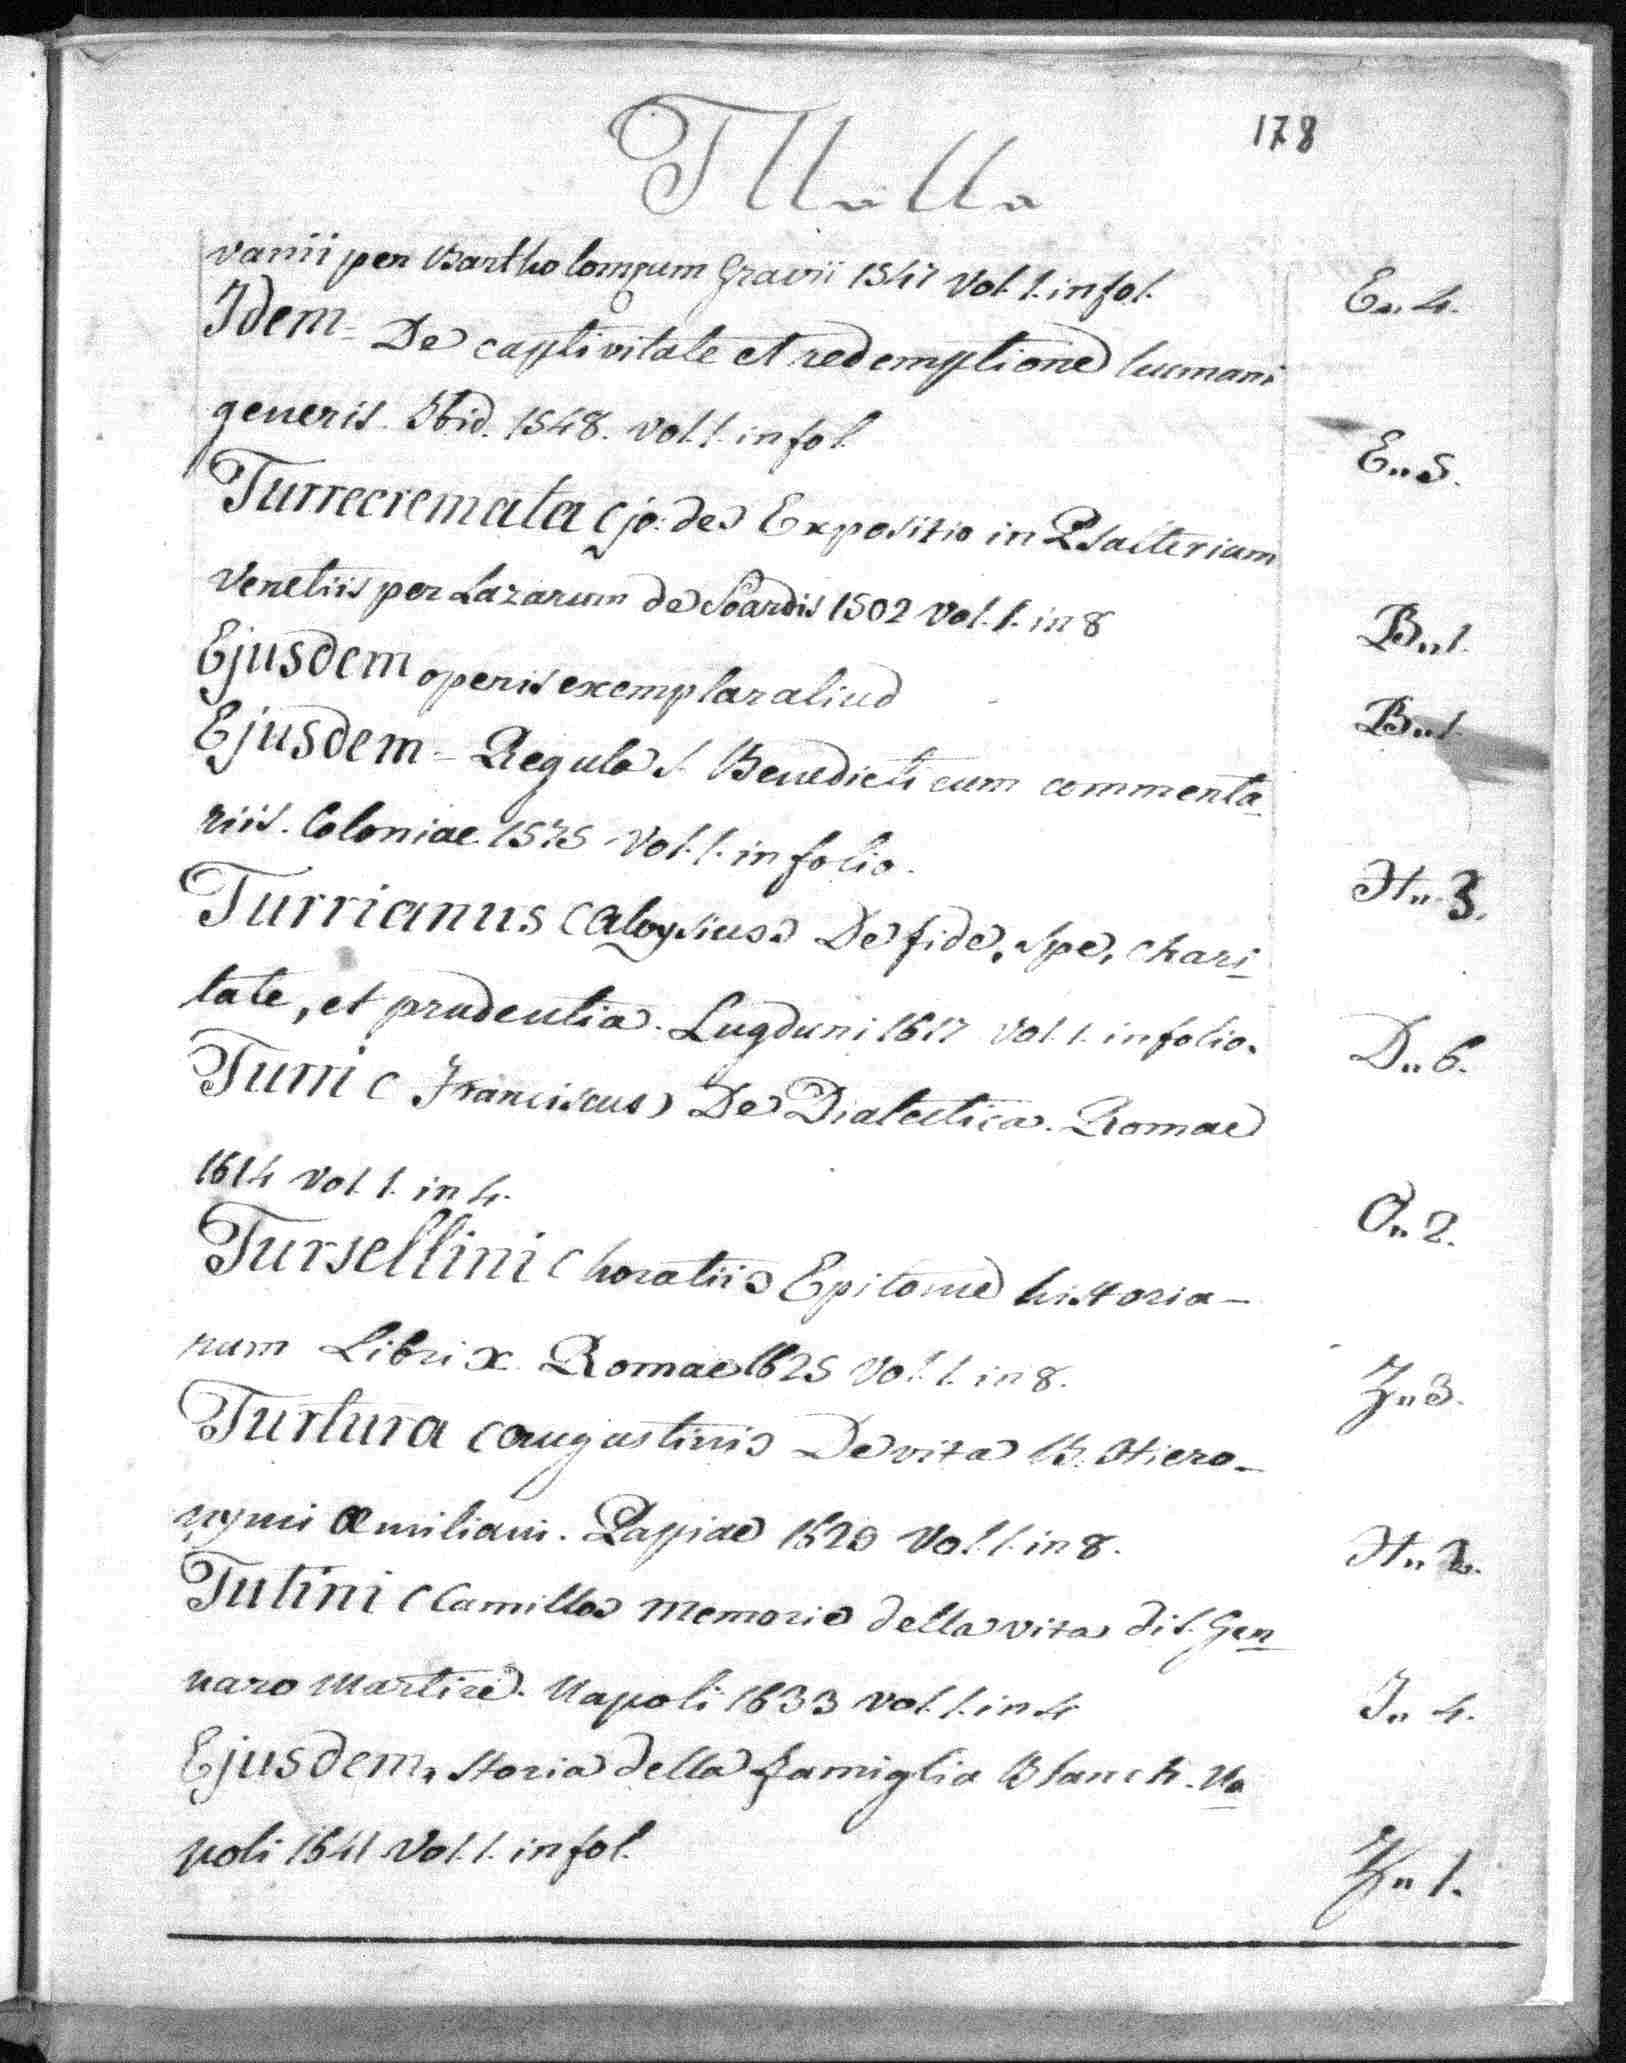 178
vanii per Bartholomęum Gravii 1547 Vol. 1. in fol. E„ 4.
Idem - De captivitate et redemptione humani
generis. Ibid. 1548. Vol. 1. in fol. E„ 5.
Turrecremata (Jo: de) Expositio in Psalterium
Venetiis per Lazarum de Soardis 1502 Vol. 1. in 8 B„ 1.
Ejusdem operis exemplar aliud B„ 1.
Ejusdem - Regula S. Benedicti cum commenta_
riis. Coloniae 1575 Vol. 1. in folio. H„ 3.
Turrianus (Aloysius) De fide, spe, chari_
tate, et prudentia. Lugduni 1617 Vol. 1. in folio. D„ 6.
Turri (Franciscus) De Dialectica. Romae
1614 Vol. 1. in 4. O„ 2.
Tursellini (horatii) Epitome historia-
rum Libri X Romae 1625 Vol. 1. in 8. Z„ 3.
Turtura (augustini) De vita B. Hiero_
nymi Æmiliani. Papiae 1629 Vol. 1. in 8. H„ 2.
Tutini (Camillo) Memorie della vita di S. Gen_
naro Martire. Napoli 1633 Vol. 1. in 4 I„ 4.
Ejusdem, Storia della famiglia Blanch. Na_
poli 1641 Vol. 1. in fol. Z„ 1.